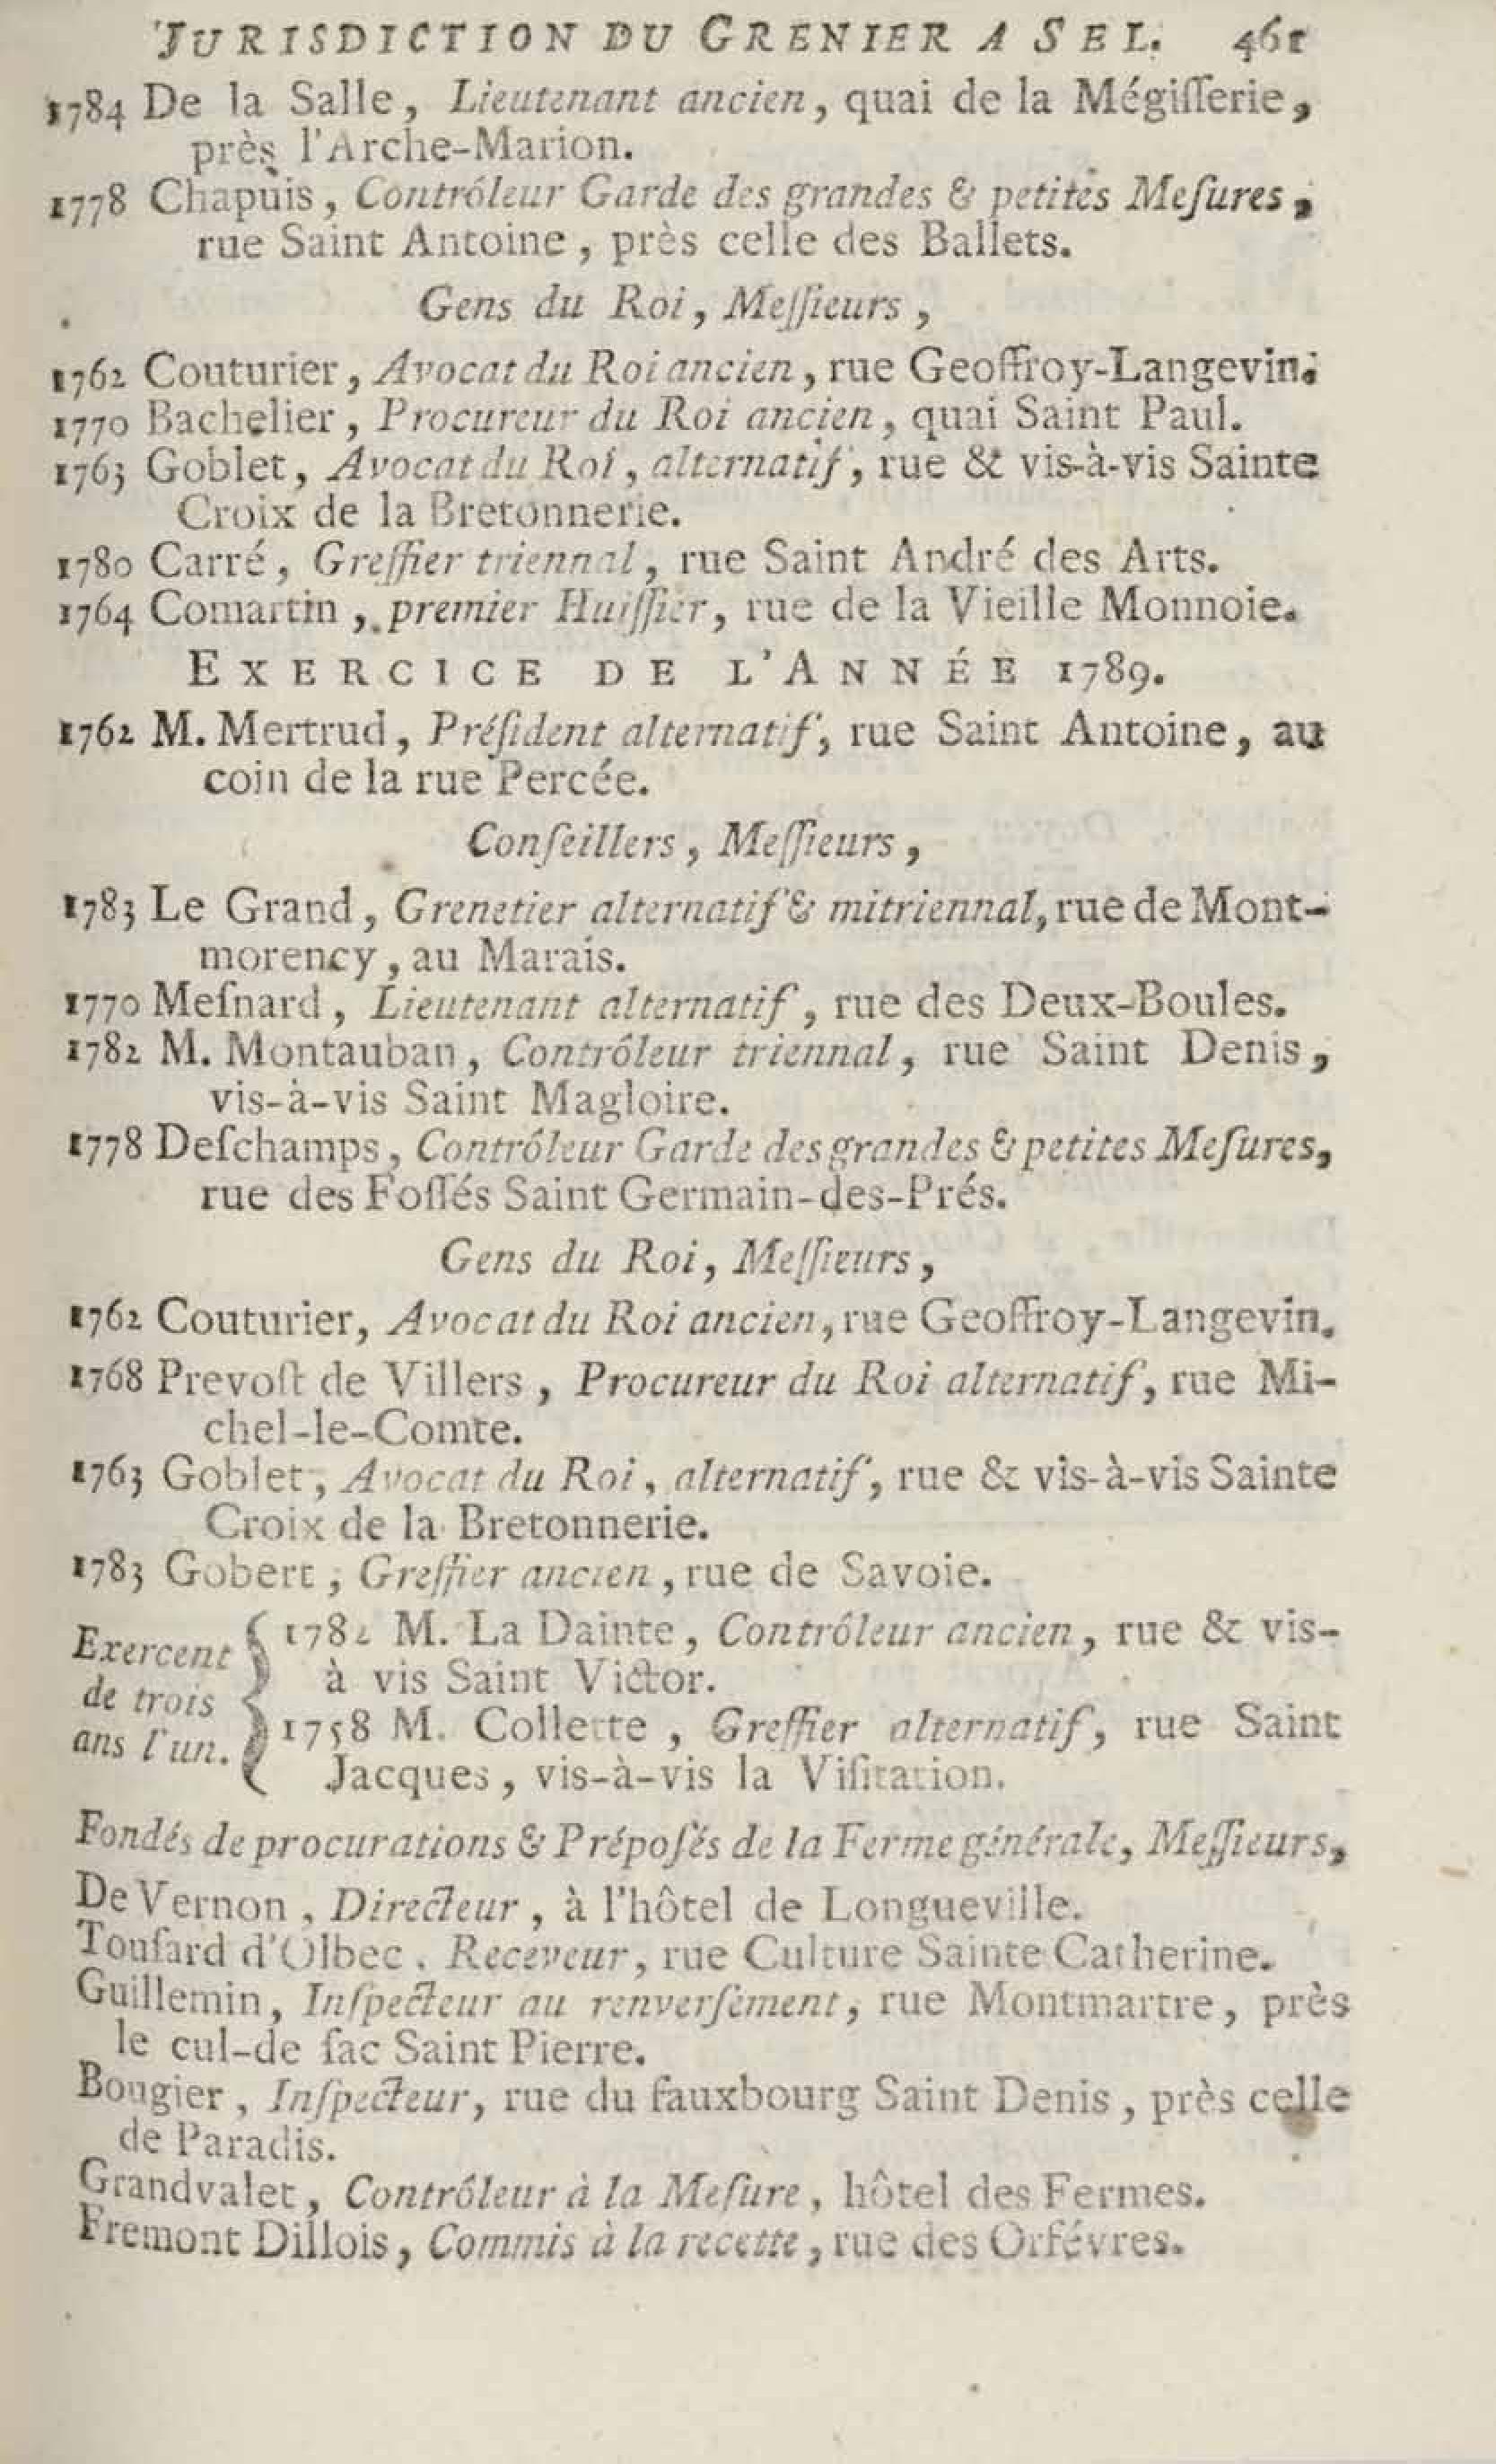 JURISDICTION DU GRENIER A SEL. 461
1784 De la Salle, Lieutenant ancien, quai de la Mégiſſerie,
près l'Arche-Marion.
1778 Chapuis, Contrôleur Garde des grandes & petites Meſures,
rue Saint Antoine, près celle des Ballets.
Gens du Roi, Meſſieurs,
1762 Couturier, Avocat du Roi ancien, rue Geoffroy-Langevin.
1770 Bachelier, Procureur du Roi ancien, quai Saint Paul.
1763 Goblet, Avocat du Roi, alternatif, rue & vis-à-vis Sainte
Croix de la Bretonnerie.
1780 Carré, Greffier triennal, rue Saint André des Arts.
1764 Comartin, premier Huiſſier, rue de la Vieille Monnoie.
EXERCICE DE L'ANNÉE 1789.
1762 M. Mertrud, Préſident alternatif, rue Saint Antoine, au
coin de la rue Percée.
Conſeillers, Meſſieurs,
1783 Le Grand, Grenetier alternatif & mitriennal, rue de Mont-
morency, au Marais.
1770 Meſnard, Lieutenant alternatif, rue des Deux-Boules.
1782 M. Montauban, Contrôleur triennal, rue Saint Denis,
vis-à-vis Saint Magloire.
1778 Deſchamps, Contrôleur Garde des grandes & petites Meſures,
rue des Foſſés Saint Germain-des-Prés.
Gens du Roi, Meſſieurs,
1762 Couturier, Avocat du Roi ancien, rue Geoffroy-Langevin.
1768 Prevoſt de Villers, Procureur du Roi alternatif, rue Mi-
chel-le-Comte.
1763 Goblet, Avocat du Roi, alternatif, rue & vis-à-vis Sainte
Croix de la Bretonnerie.
1783 Gobert, Greffier ancien, rue de Savoie.
Exercent de trois ans l'un.
1782 M. La Dainte, Contrôleur ancien, rue & vis-
à vis Saint Victor.
1758 M. Collette, Greffier alternatif, rue Saint
Jacques, vis-à-vis la Viſitation.
Fondés de procurations & Prépoſés de la Ferme générale, Meſſieurs,
De Vernon, Directeur, à l'hôtel de Longueville.
Touſard d'Olbec, Receveur, rue Culture Sainte Catherine.
Guillemin, Inſpecteur au renverſement, rue Montmartre, près
le cul-de ſac Saint Pierre.
Bougier, Inſpecteur, rue du fauxbourg Saint Denis, près celle
de Paradis.
Grandvalet, Contrôleur à la Meſure, hôtel des Fermes.
Fremont Dillois, Commis à la recette, rue des Orfévres.